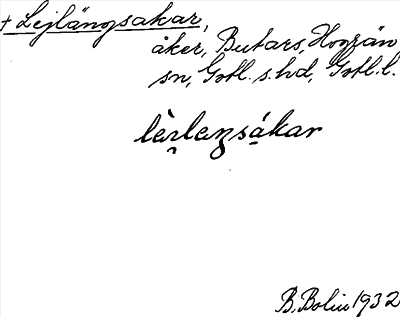 + Lejlängsakar,
åker, Butars, Hogrän
sn, Gotl. s. hd, Gotl. l.
lèɪlengsákar
B. Bolin 1932